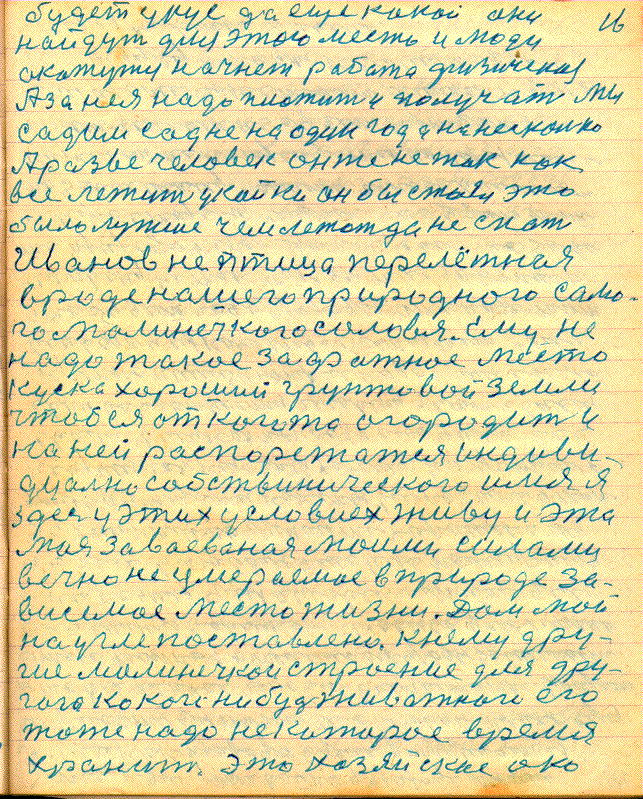 16
будет укус да еще какой они
найдут для этого месть и люди
окажутся начнет работа физическая
А за нея надо платить и получать Мы
садим сад не на один год а на несколко
А разве человек он же не так как
все лежит у койки он бы стоял это
было лучше чем лежать да не спат
Иванов не птица перелётная
вроде нашего природного само-
го малинечкого соловя. Ему не
надо такое захватное место
куска хороший грунтовой земли
чтобся от кого то огородит и
на ней распорежатся индиви-
дуално собствинического имя я
здес у этих условиех живу и эта
моя заваеваная моими силами
вечно не умераемое в природе за-
висемое место жизни. Дом мой
на угле поставлено. К нему дру-
гие малинечкои строение для дру-
гого кокого нибуд животного его
тоже надо некоторое время
хранит. Это хозяйское око